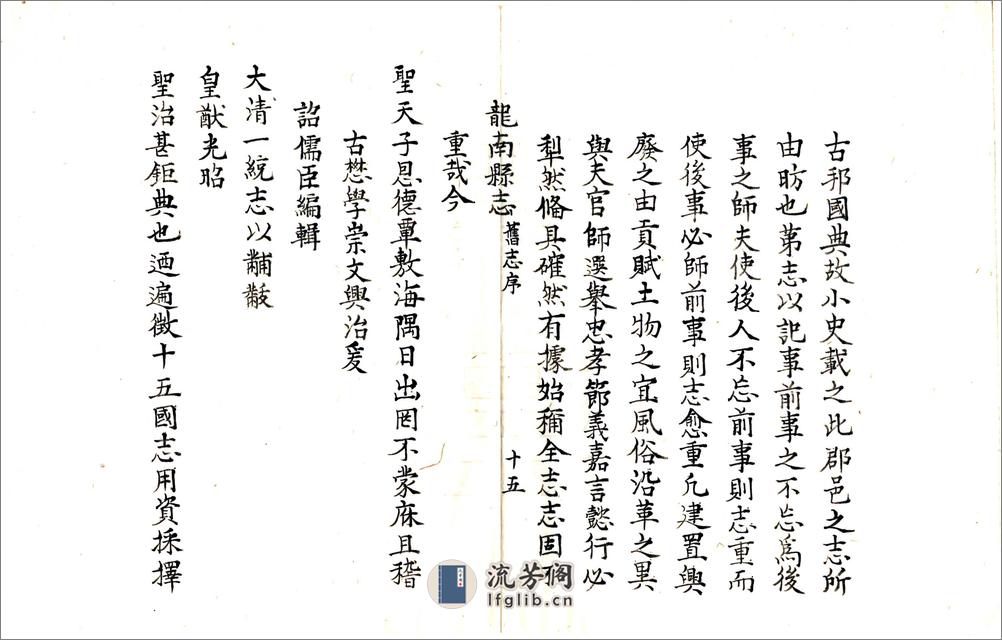 古邦國典故小史載之此郡邑之志所
由昉也第志以記事前事之不忘爲後
事之師夫使後人不忘前事則志重而
使後事必師前事則志愈重凢建置興
廢之由貢賦土物之宜風俗沿革之異
與夫官師選舉忠孝節義嘉言懿行必
犁然俻具確然有據始稱全志志固不
龍南縣志 舊志序 十五
重哉今
聖天子恩德覃敷海隅日出罔不蒙庥且稽
古懋學崇文興治爰
詔儒臣編輯
大清一統志以黼黻
皇猷光昭
聖治甚鉅典也迺遍徵十五國志用資採擇
流芳阁
lfglib.cn